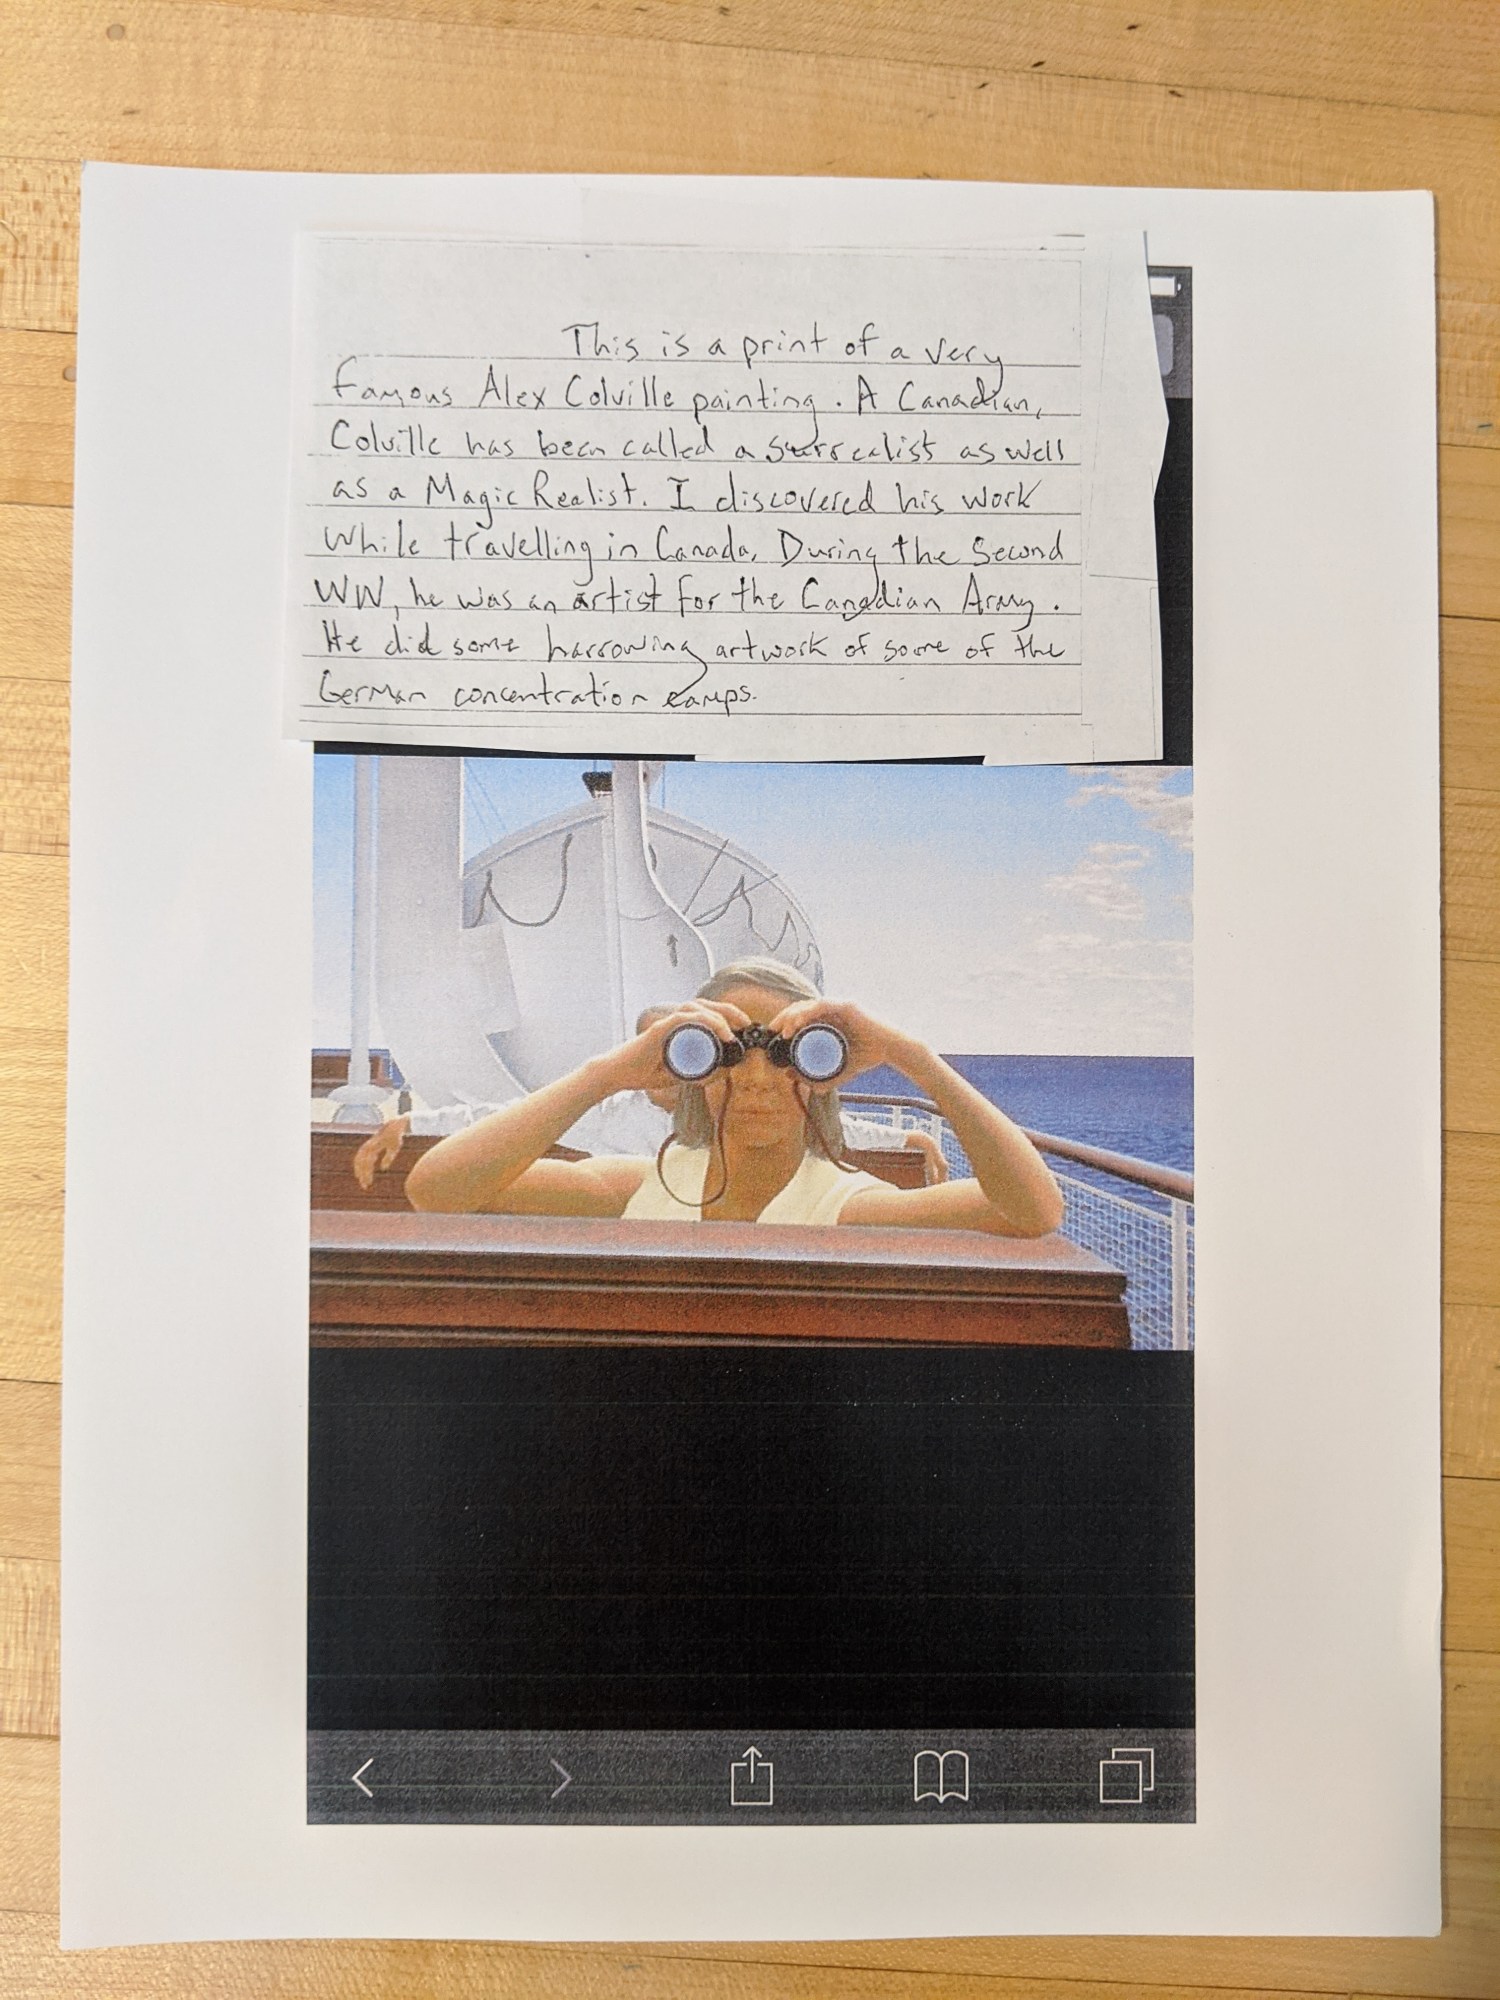 This is a print of a very
famous Alex Colville painting. A Canadian,
Colville has been called a surrealist as well
as a Magic Realist. I discovered his work
While travelling in Canada. During the Second
WW, he was an artist for the Canadian Army.
He did some harrowing artwork of some of the
German concentration camps.